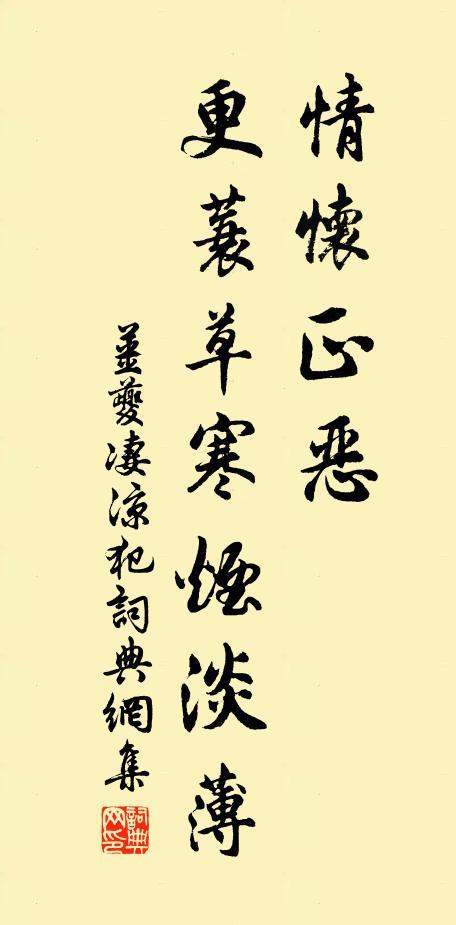 情懷正惡
更蓑草寒煙淡薄
姜夔淒涼犯詞典網集
詞典網印